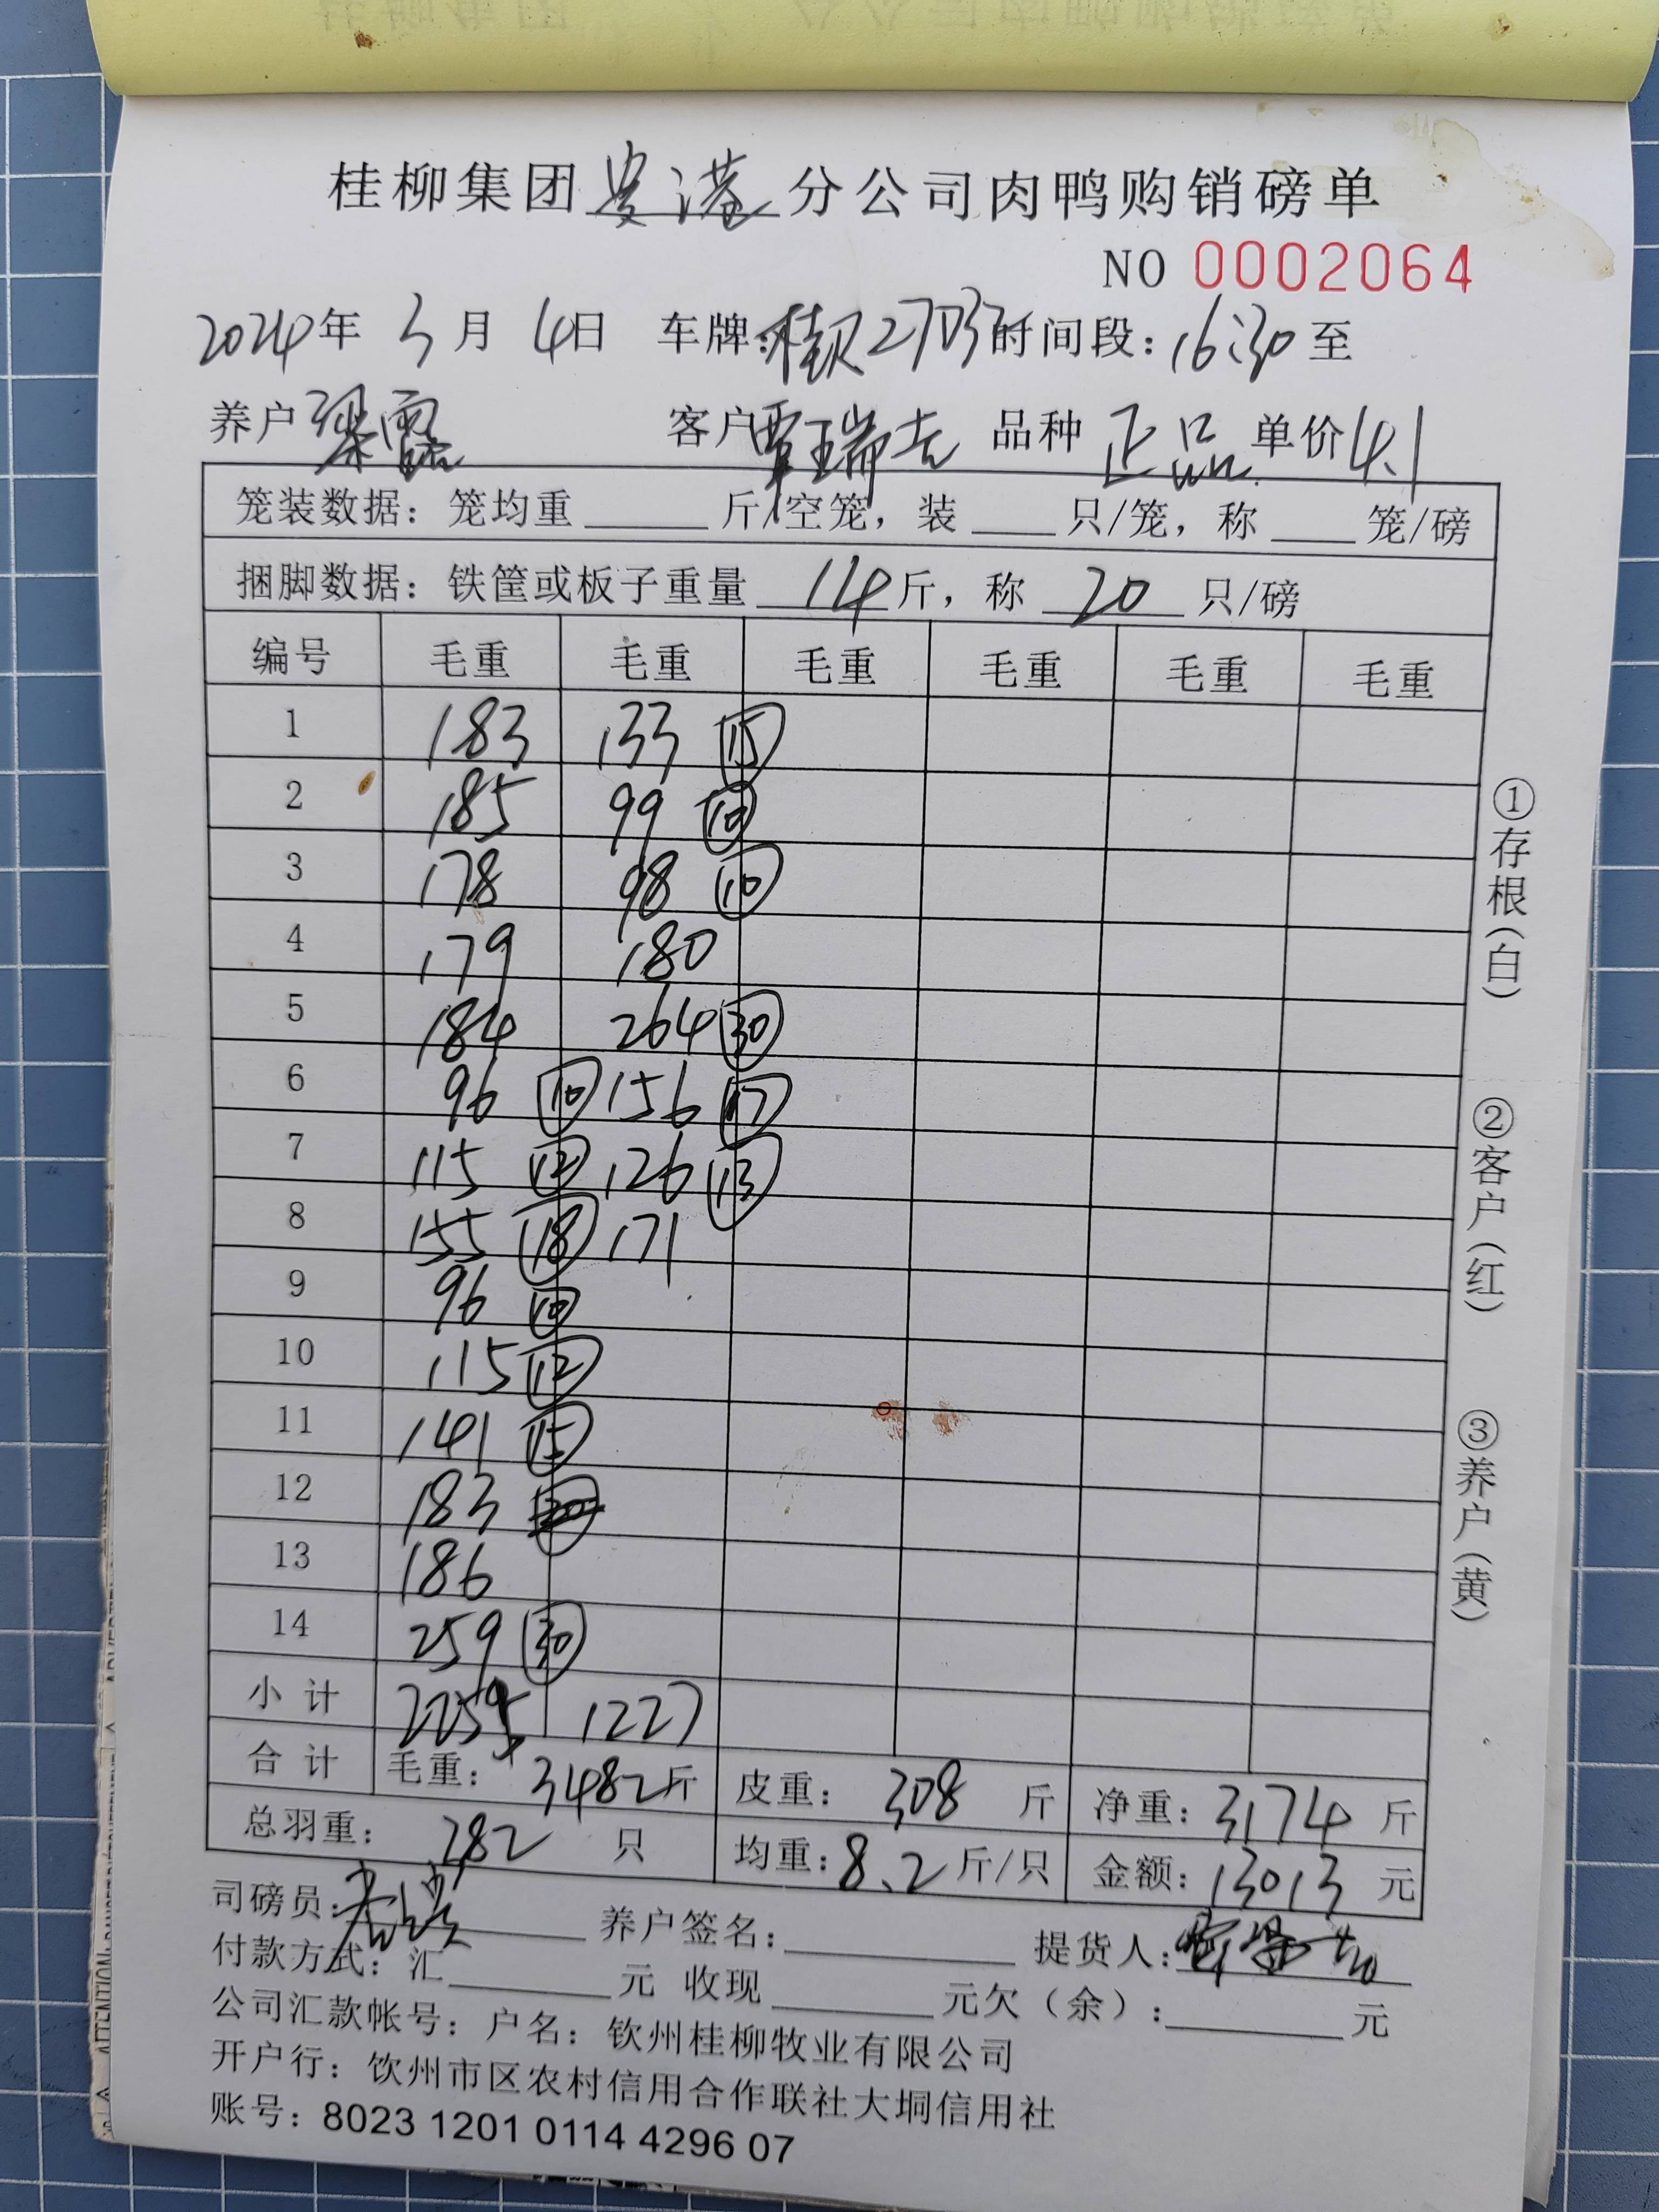 桂柳集团贵港分公司肉鸭购销磅单
NO 0002064
2024年 3月 4日 车牌:桂R27D37时间段:16:30至
养户梁露 客户覃瑞吉 品种 正品 单价4.1
笼装数据:笼均重____斤/空笼,装___只/笼,称___笼/磅
捆脚数据:铁筐或板子重量 14斤,称 20 只/磅
编号 毛重 毛重 毛重 毛重 毛重 毛重
1 183 133 ⑮
2 185 99 ⑩
3 178 98 ⑩
4 179 180
5 184 264 ㉚
6 96 ⑩ 156 ⑰
7 115 ⑫ 126 ⑬
8 155 ⑱ 171
9 96 ⑩
10 115 ⑫
11 141 ⑮
12 183
13 186
14 259 ㉚
小计 2255 1227
合计 毛重:3482斤 皮重:308 斤 净重:3174 斤
总羽重: 282 只 均重:8.2斤/只 金额:13013 元
司磅员: 养户签名: 提货人:
付款方式:汇____元 收现____元欠(余):____元
公司汇款帐号:户名:钦州桂柳牧业有限公司
开户行:饮州市区农村信用合作联社大垌信用社
账号:8023 1201 0114 4296 07
①存根(白)
②客户(红)
③养户(黄)